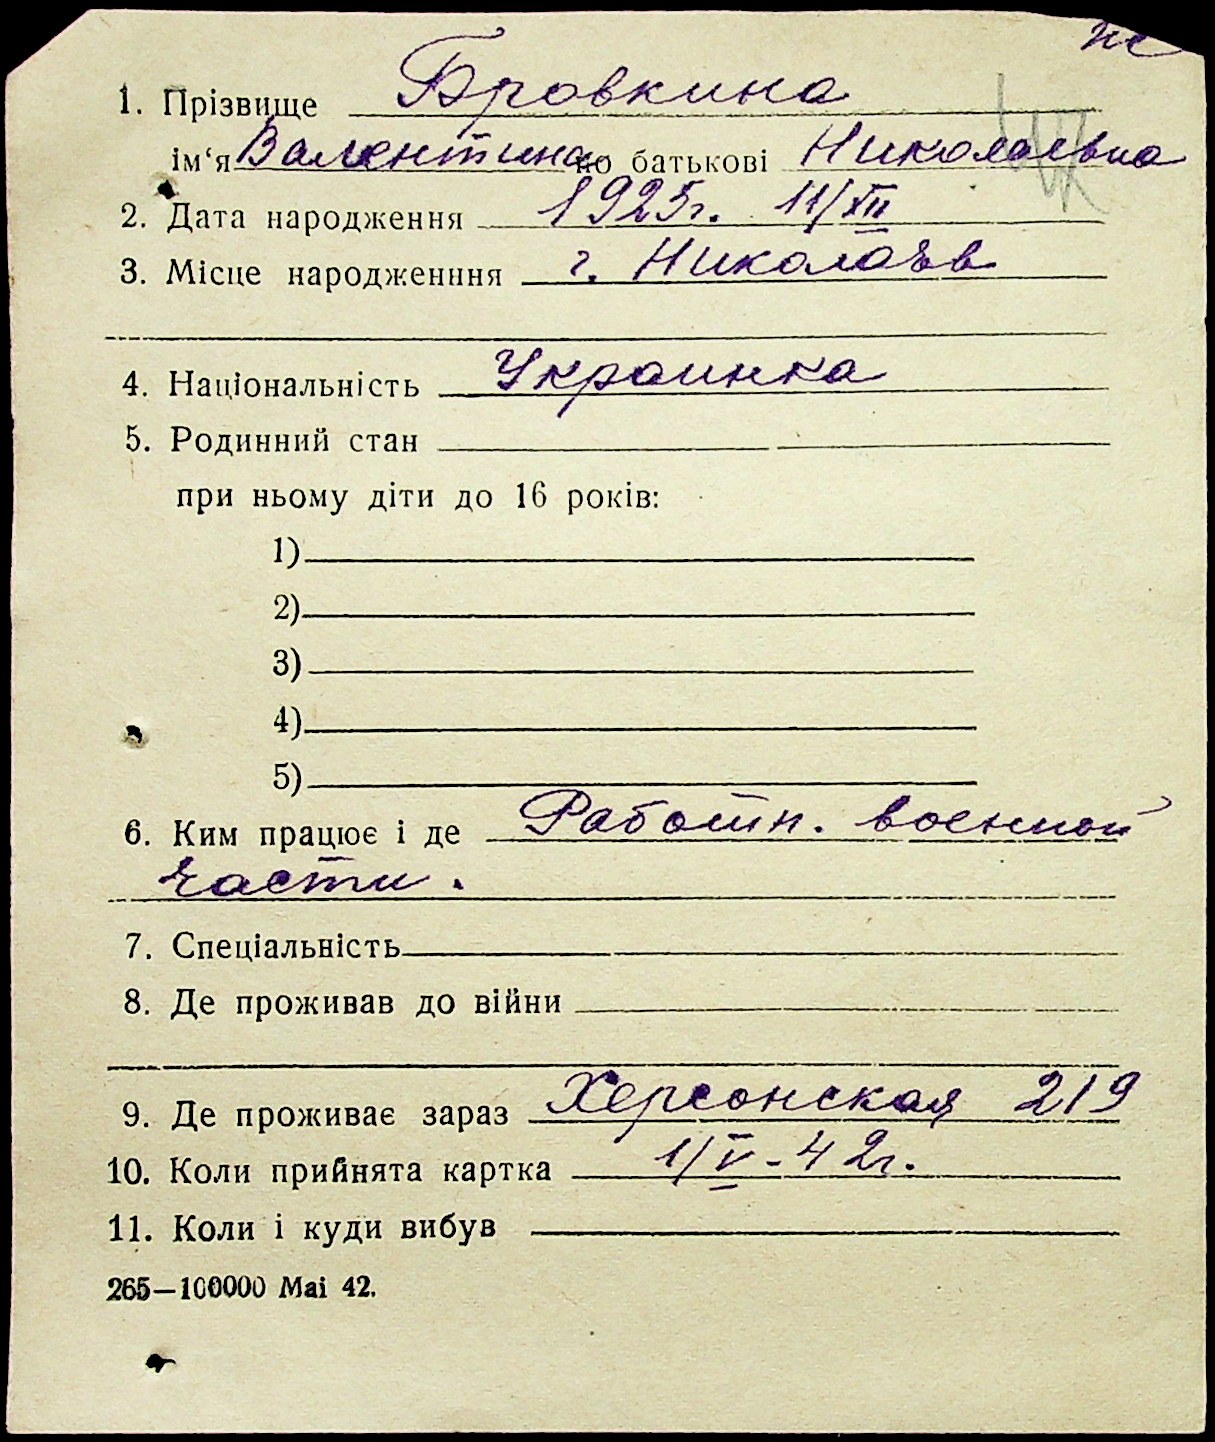 же
1. Прізвище Бровкина
ім‘я Валентина по батькові Николаевна
2. Дата народження 1925г. 11/XII
3. Місце народженння г. Николаев
4. Національність Украинка
5. Родинний стан
при ньому діти до 16 років:
1)
2)
3)
4)
5)
6. Ким працює і де Работн. военной
части.
7. Спеціальність
8. Де проживав до війни
9. Де проживає зараз Херсонская 219
10. Коли прийнята картка 1/V-42г.
11. Коли і куди вибув
265—100000 Маі 42.